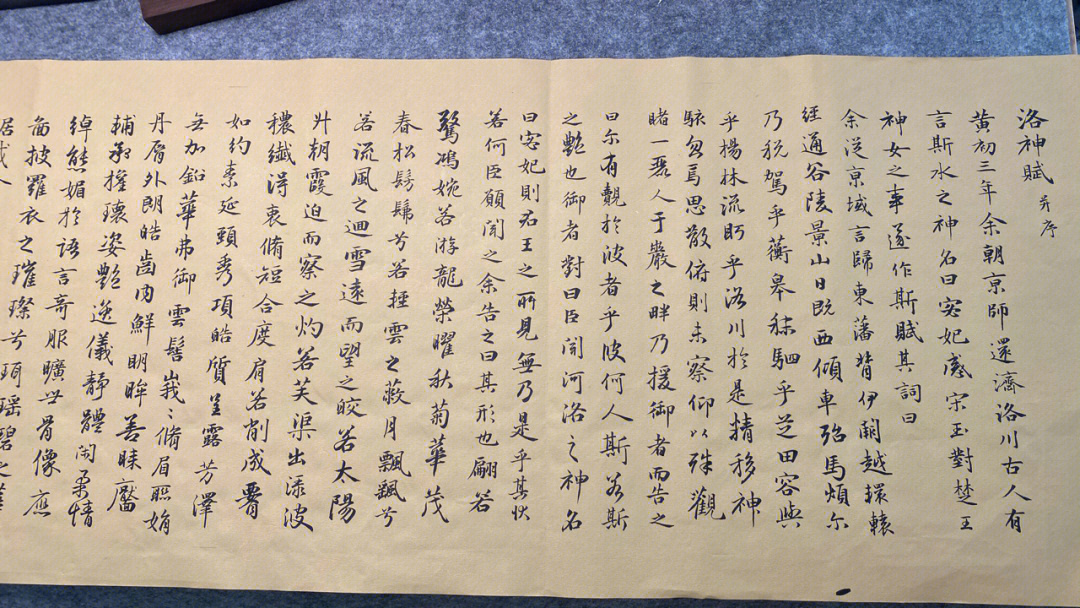 洛神賦 并序
黃初三年余朝京師還濟洛川古人有
言斯水之神名曰宓妃感宋玉對楚王
神女之事遂作斯賦其詞曰
余從京域言歸東藩背伊闕越轘轅
經通谷陵景山日既西傾車殆馬煩尔
乃稅駕乎蘅皋秣駟乎芝田容與
乎楊林流眄乎洛川於是精移神
駭忽焉思散俯則未察仰以殊觀
睹一麗人于巖之畔乃援御者而告之
曰尔有覿於彼者乎彼何人斯若斯
之艷也御者對曰臣聞河洛之神名
曰宓妃則君王之所見無乃是乎其狀
若何臣願聞之余告之曰其形也翩若
驚鴻婉若游龍榮曜秋菊華茂
春松髣髴兮若輕雲之蔽月飄飄兮
若流風之迴雪遠而望之皎若太陽
升朝霞迫而察之灼若芙渠出淥波
穠纖得衷脩短合度肩若削成腰
如約素延頸秀項皓質呈露芳澤
無加鉛華弗御雲髻峩〻脩眉聯娟
丹脣外朗皓齒內鮮明眸善睞靨
輔承權瓌姿艷逸儀靜體閑柔情
綽態媚於語言奇服曠世骨像應
圖披羅衣之璀璨兮珥瑤碧之華